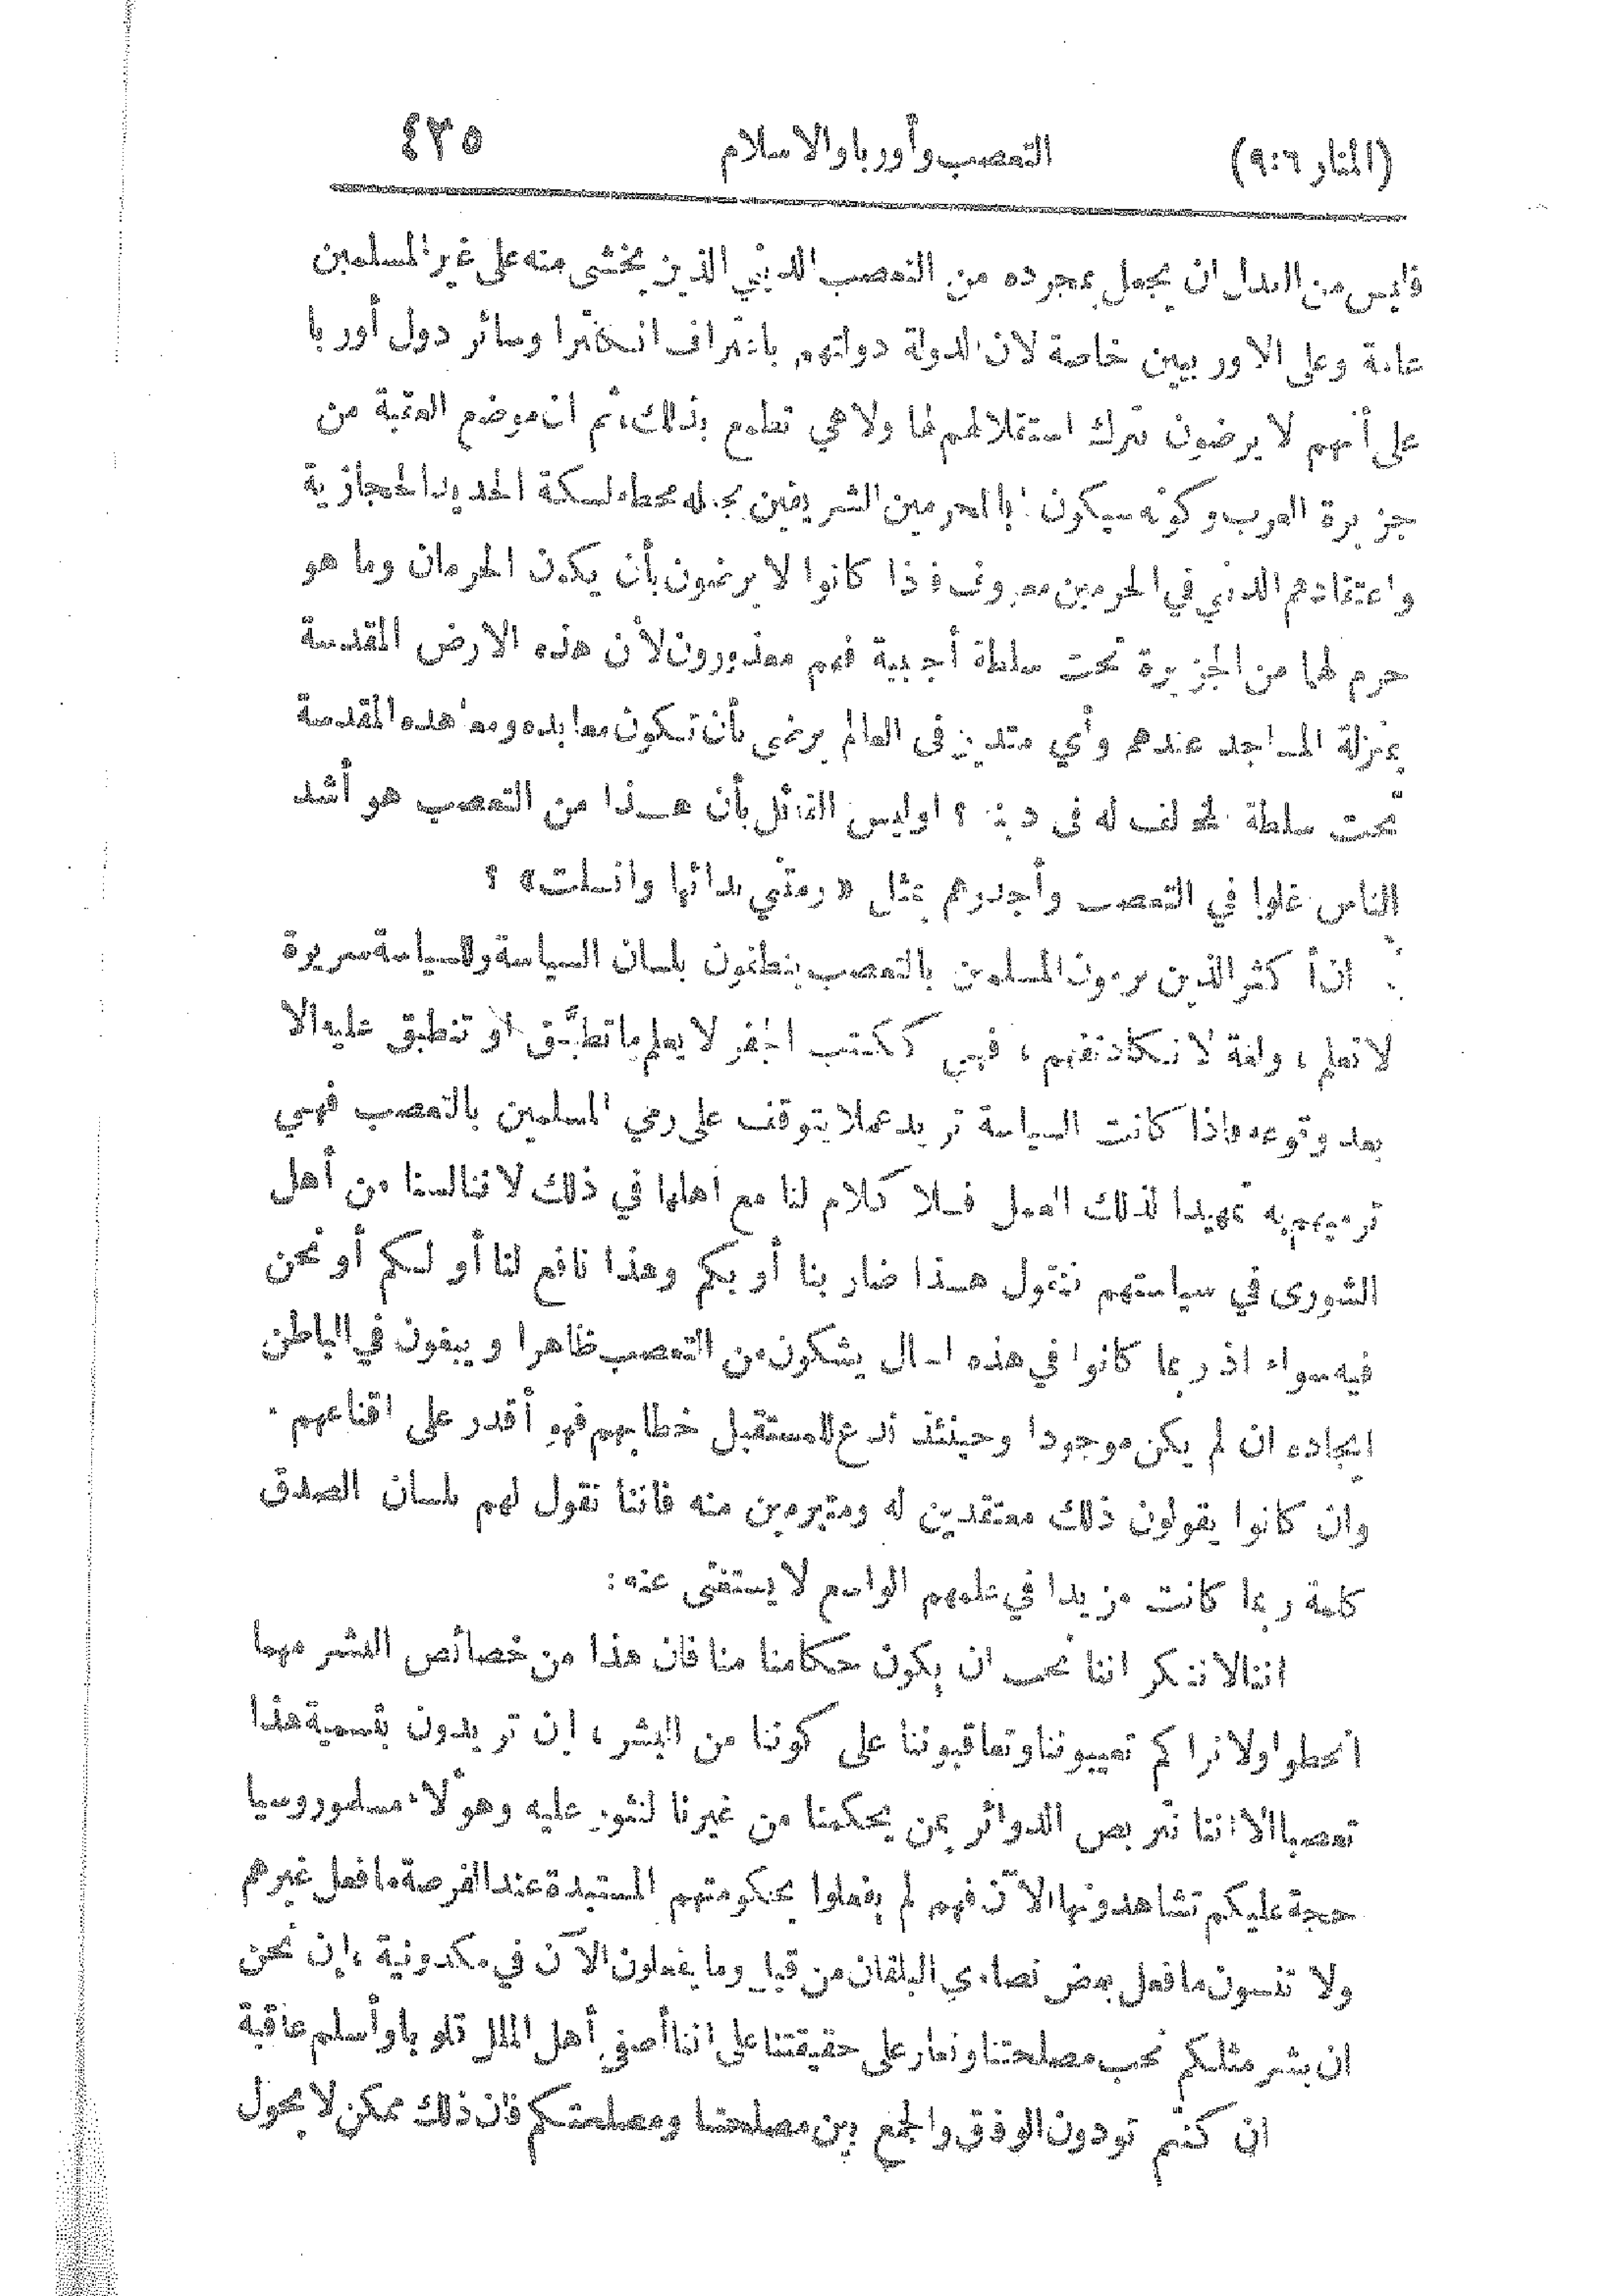 (المنار ٩:٦) التعصب وأوربا والاسلام ٤٣٥
فليس من العدل ان يجعل بمجرده من التعصب الديني الذين يخشى منه على غير المسلمين
عامة وعلى الاوربيين خاصة لان الدولة دولتهم باعتراف انكلترا وسائر دول أوربا
على أنهم لا يرضون بترك استقلالهم لها ولا هي تطمع بذلك، ثم ان موضع العقبة من
جزيرة العرب وكونه سيكون بابا للحرمين الشريفين بجعله محطة لسكة الحديد الحجازية
واعتقادهم الديني في الحرمين معروف فاذا كانوا لا يرضون بأن يكون الحرمان وما هو
حرم لهما من الجزيرة تحت سلطة أجنبية فهم معذورون لأن هذه الارض المقدسة
بمنزلة المساجد عندهم وأي متدين في العالم يرضى بأن تكون معابده ومعاهده المقدسة
تحت سلطة مخالف له في دينه ؟ اوليس القائل بأن هذا من التعصب هو أشد
الناس غلوا في التعصب وأجدرهم بمثل « رمتني بدائها وانسلت » ؟
ان أكثر الذين يرمون المسلمين بالتعصب ينطقون بلسان السياسة وللسياسة سريرة
لا تعلم ، ولغة لا تكاد تفهم ، فهي ككتب الجفر لا يعلم ما تطبق او تنطبق عليه الا
بعد وقوعه فاذا كانت السياسة تريد عملا يتوقف على رمي المسلمين بالتعصب فهي
ترميهم به تمهيدا لذلك العمل فلا كلام لنا مع اهلها في ذلك لاننا لسنا من أهل
الشورى في سياستهم فنقول هذا ضار بنا أو بكم وهذا نافع لنا أو لكم أو نحن
فيه سواء اذ ربما كانوا في هذه الحال يشكون من التعصب ظاهرا ويبغون في الباطن
ايجاده ان لم يكن موجودا وحينئذ ندع للمستقبل خطابهم فهو أقدر على اقناعهم .
وان كانوا يقولون ذلك معتقدين له ومتبرمين منه فاننا نقول لهم بلسان الصدق
كلمة ربما كانت مزيدا في علمهم الواسع لا يستغنى عنه :
اننا لا ننكر اننا نحب ان يكون حكامنا منا فان هذا من خصائص البشر مهما
انحطوا ولا نراكم تعيبوننا وتعاقبوننا على كوننا من البشر ، إن تريدون بتسمية هذا
تعصبا الا اننا نتربص الدوائر بمن يحكمنا من غيرنا لنثور عليه وهؤلاء مسلمو روسيا
حجة عليكم تشاهدونها الآن فهم لم يفعلوا بحكومتهم المستبدة عند الفرصة ما فعل غيرهم
ولا تنسون ما فعل بعض نصارى البلقان من قبل وما يفعلون الآن في مكدونية ، إن نحن
ان بشر مثلكم نحب مصلحتنا ونغار على حقيقتنا على اننا أصفى أهل الملل قلوبا وأسلم عاقبة
ان كنتم تودون الوفق والجمع بين مصلحتنا ومصلحتكم فان ذلك ممكن لا يحول